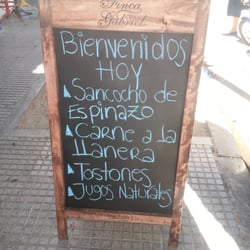 Finca
Gabriel
Bienvenidos
HOY
Sancocho de
Espinazo
Carne a la
llanera
Tostones
Jugos Naturales